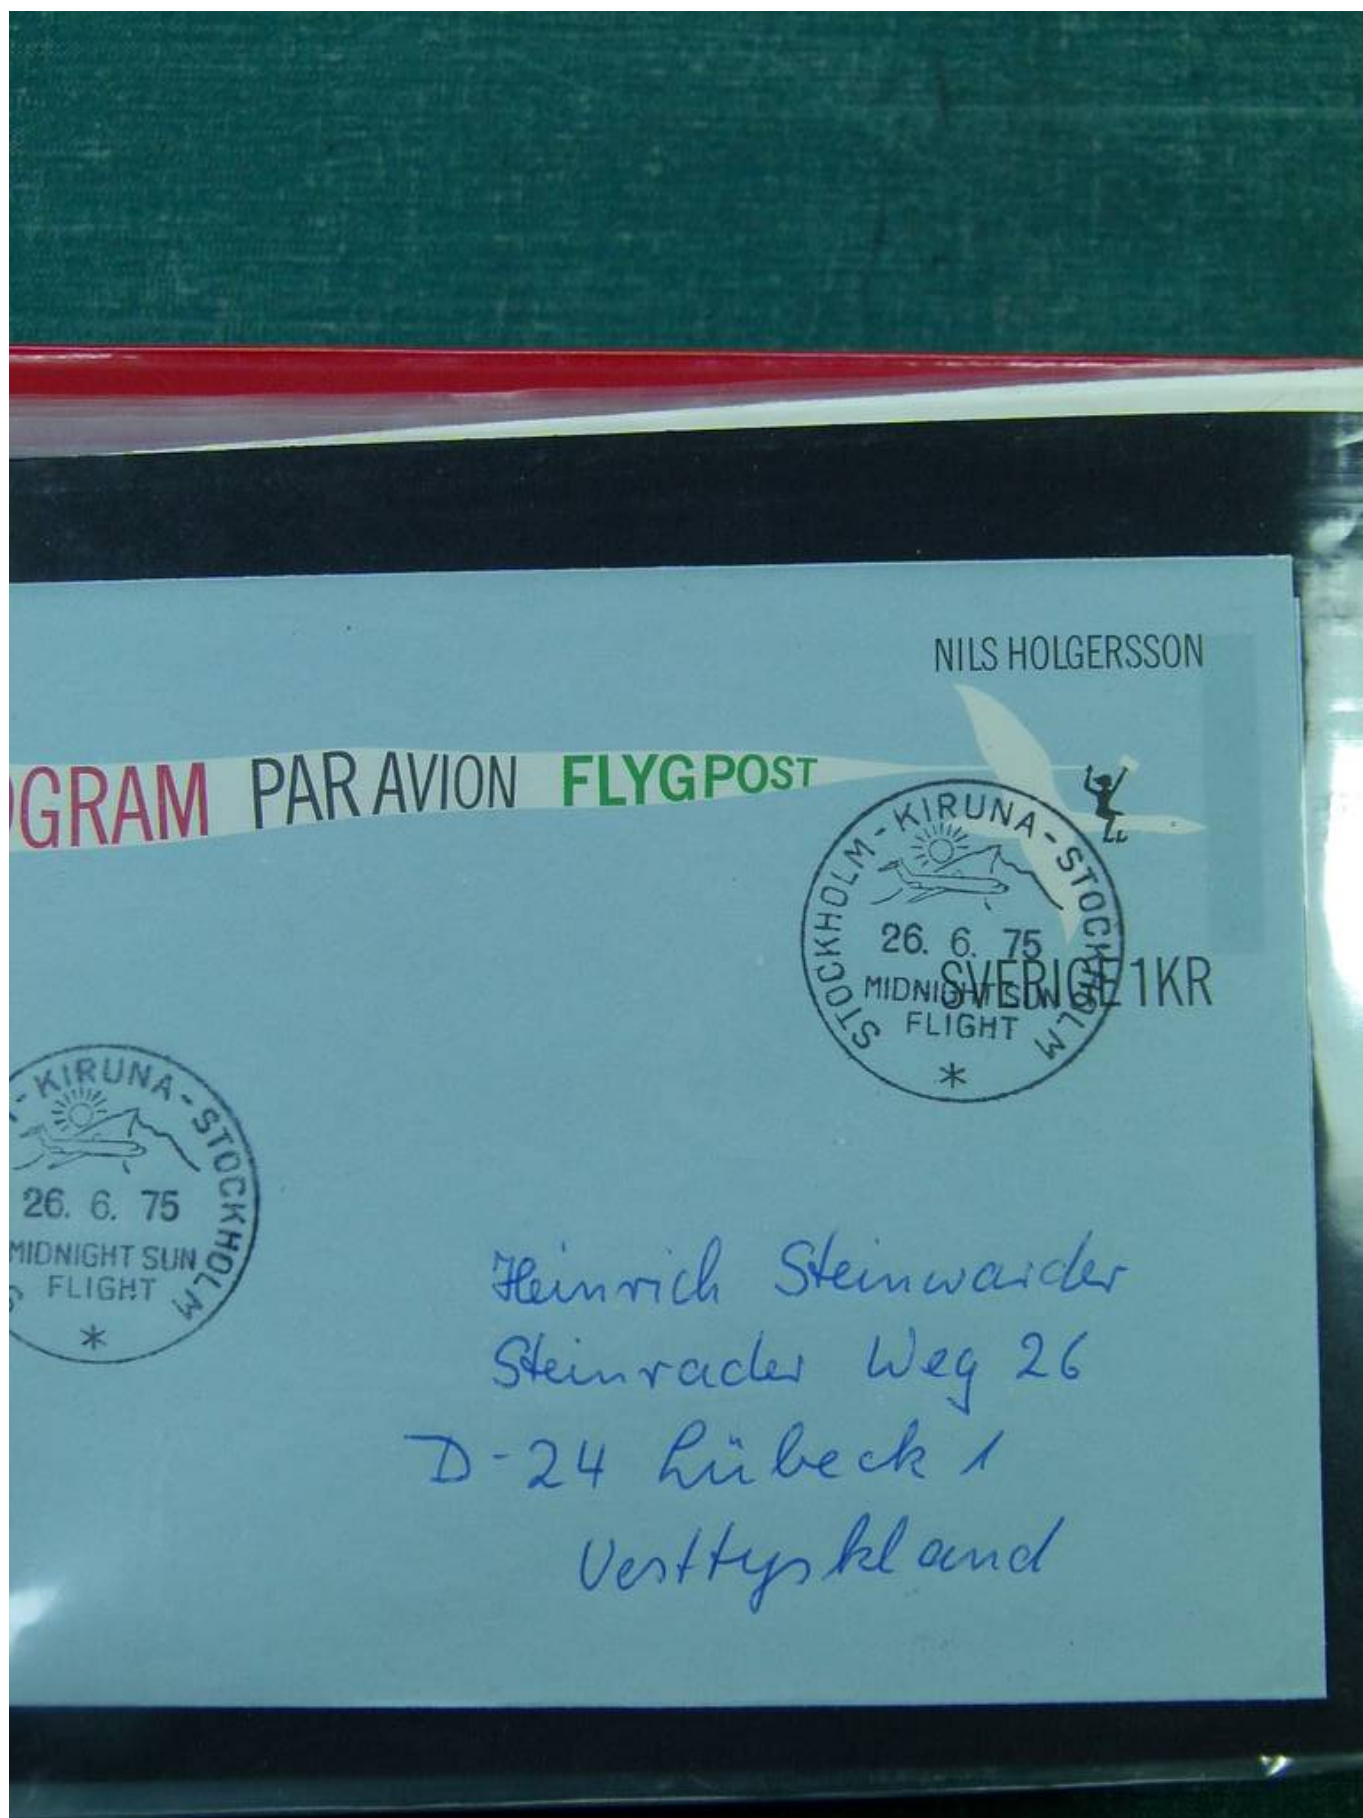 NILS HOLGERSSON
OGRAM PAR AVION FLYGPOST
STOCKHOLM-KIRUNA-STOCKHOLM
26. 6. 75
MIDNIGHT SUN
FLIGHT
*
SVERIGE 1KR
-KIRUNA-STOCKHOLM
26. 6. 75
MIDNIGHT SUN
FLIGHT
*
Heinrich Steinwarder
Steinrader Weg 26
D-24 Lübeck 1
Vesttyskland